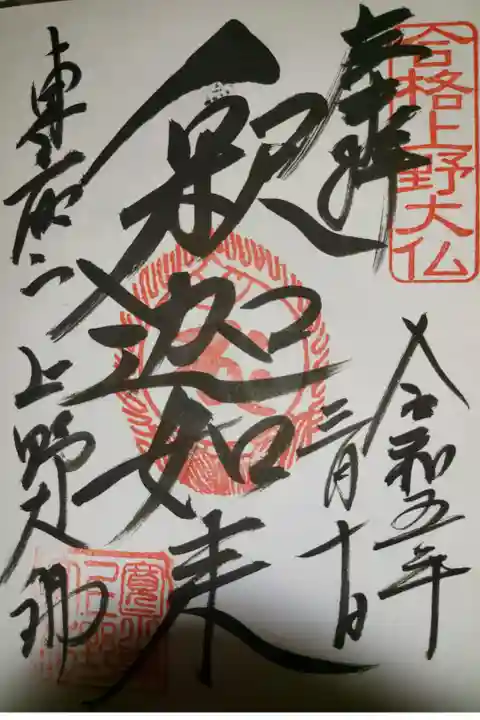 合格上野大仏
奉拝
令和五年
三月十日
釈迦如来
東叡山 上野大佛